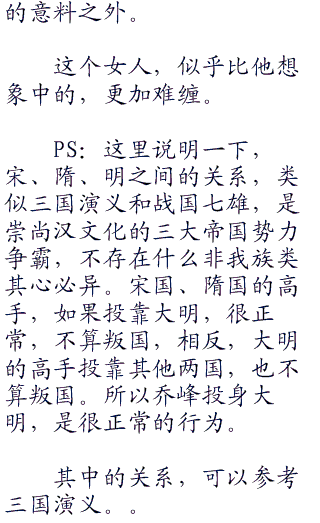 的意料之外。
这个女人，似乎比他想
象中的，更加难缠。
PS：这里说明一下，
宋、隋、明之间的关系，类
似三国演义和战国七雄，是
崇尚汉文化的三大帝国势力
争霸，不存在什么非我族类
其心必异。宋国、隋国的高
手，如果投靠大明，很正
常，不算叛国，相反，大明
的高手投靠其他两国，也不
算叛国。所以乔峰投身大
明，是很正常的行为。
其中的关系，可以参考
三国演义。。